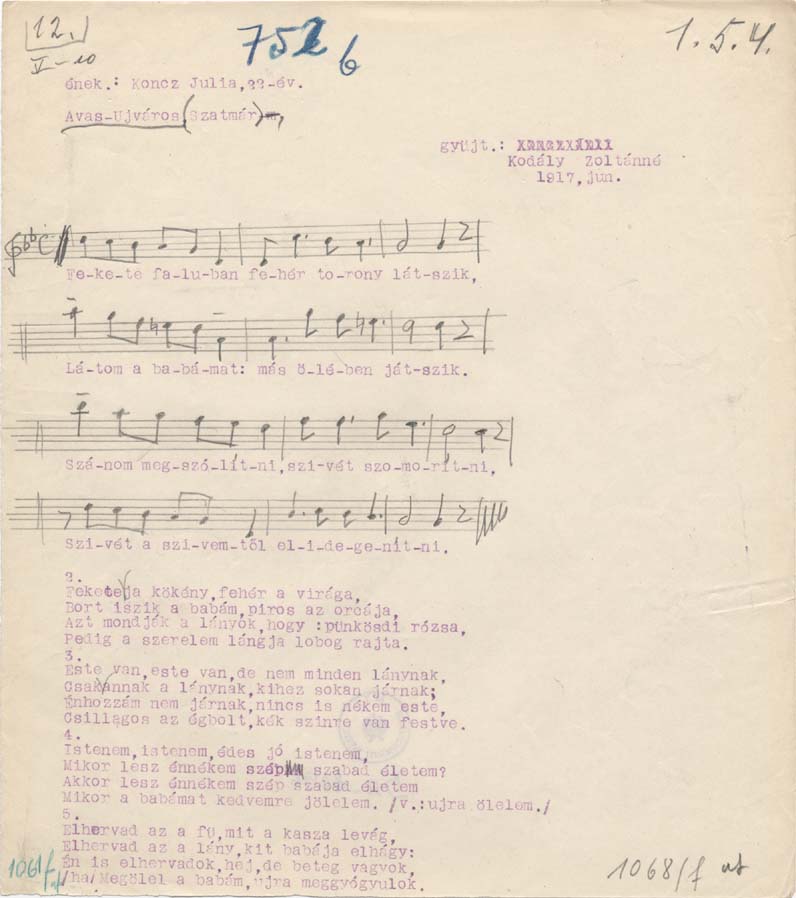 12.
V-10
752 b
1.5.4.
ének.: Koncz Julia,22-év.
Avas-Ujváros(Szatmár)
gyüjt.:
Kodály Zoltánné
1917,jun.
Fe-ke-te fa-lu-ban fe-hér to-rony lát-szik,
Lá-tom a ba-bá-mat: más ö-lé-ben ját-szik.
Szá-nom meg-szó-lít-ni,szi-vét szo-mo-rít-ni,
Szi-vét a szi-vem-től el-i-de-ge-nít-ni.
2.
Fekete ja kökény,fehér a virága,
Bort iszik a babám,piros az orcája,
Azt mondják a lányok,hogy :pünkösdi rózsa,
Pedig a szerelem lángja lobog rajta.
3.
Este van,este van,de nem minden lánynak,
Csak annak a lánynak,kihez sokan járnak;
Énhozzám nem járnak,nincs is nékem este,
Csillagos az égbolt,kék szinre van festve.
4.
Istenem,istenem,édes jó istenem,
Mikor lesz énnékem szép szabad életem?
Akkor lesz énnékem szép szabad életem
Mikor a babámat kedvemre jölelem. /v.:ujra ölelem./
5.
Elhervad az a fü,mit a kasza levég,
Elhervad az a lány,kit babája elhágy:
Én is elhervadok,hej,de beteg vagyok,
/ha/Megölel a babám,ujra meggyógyulok.
1061/f
1068/f